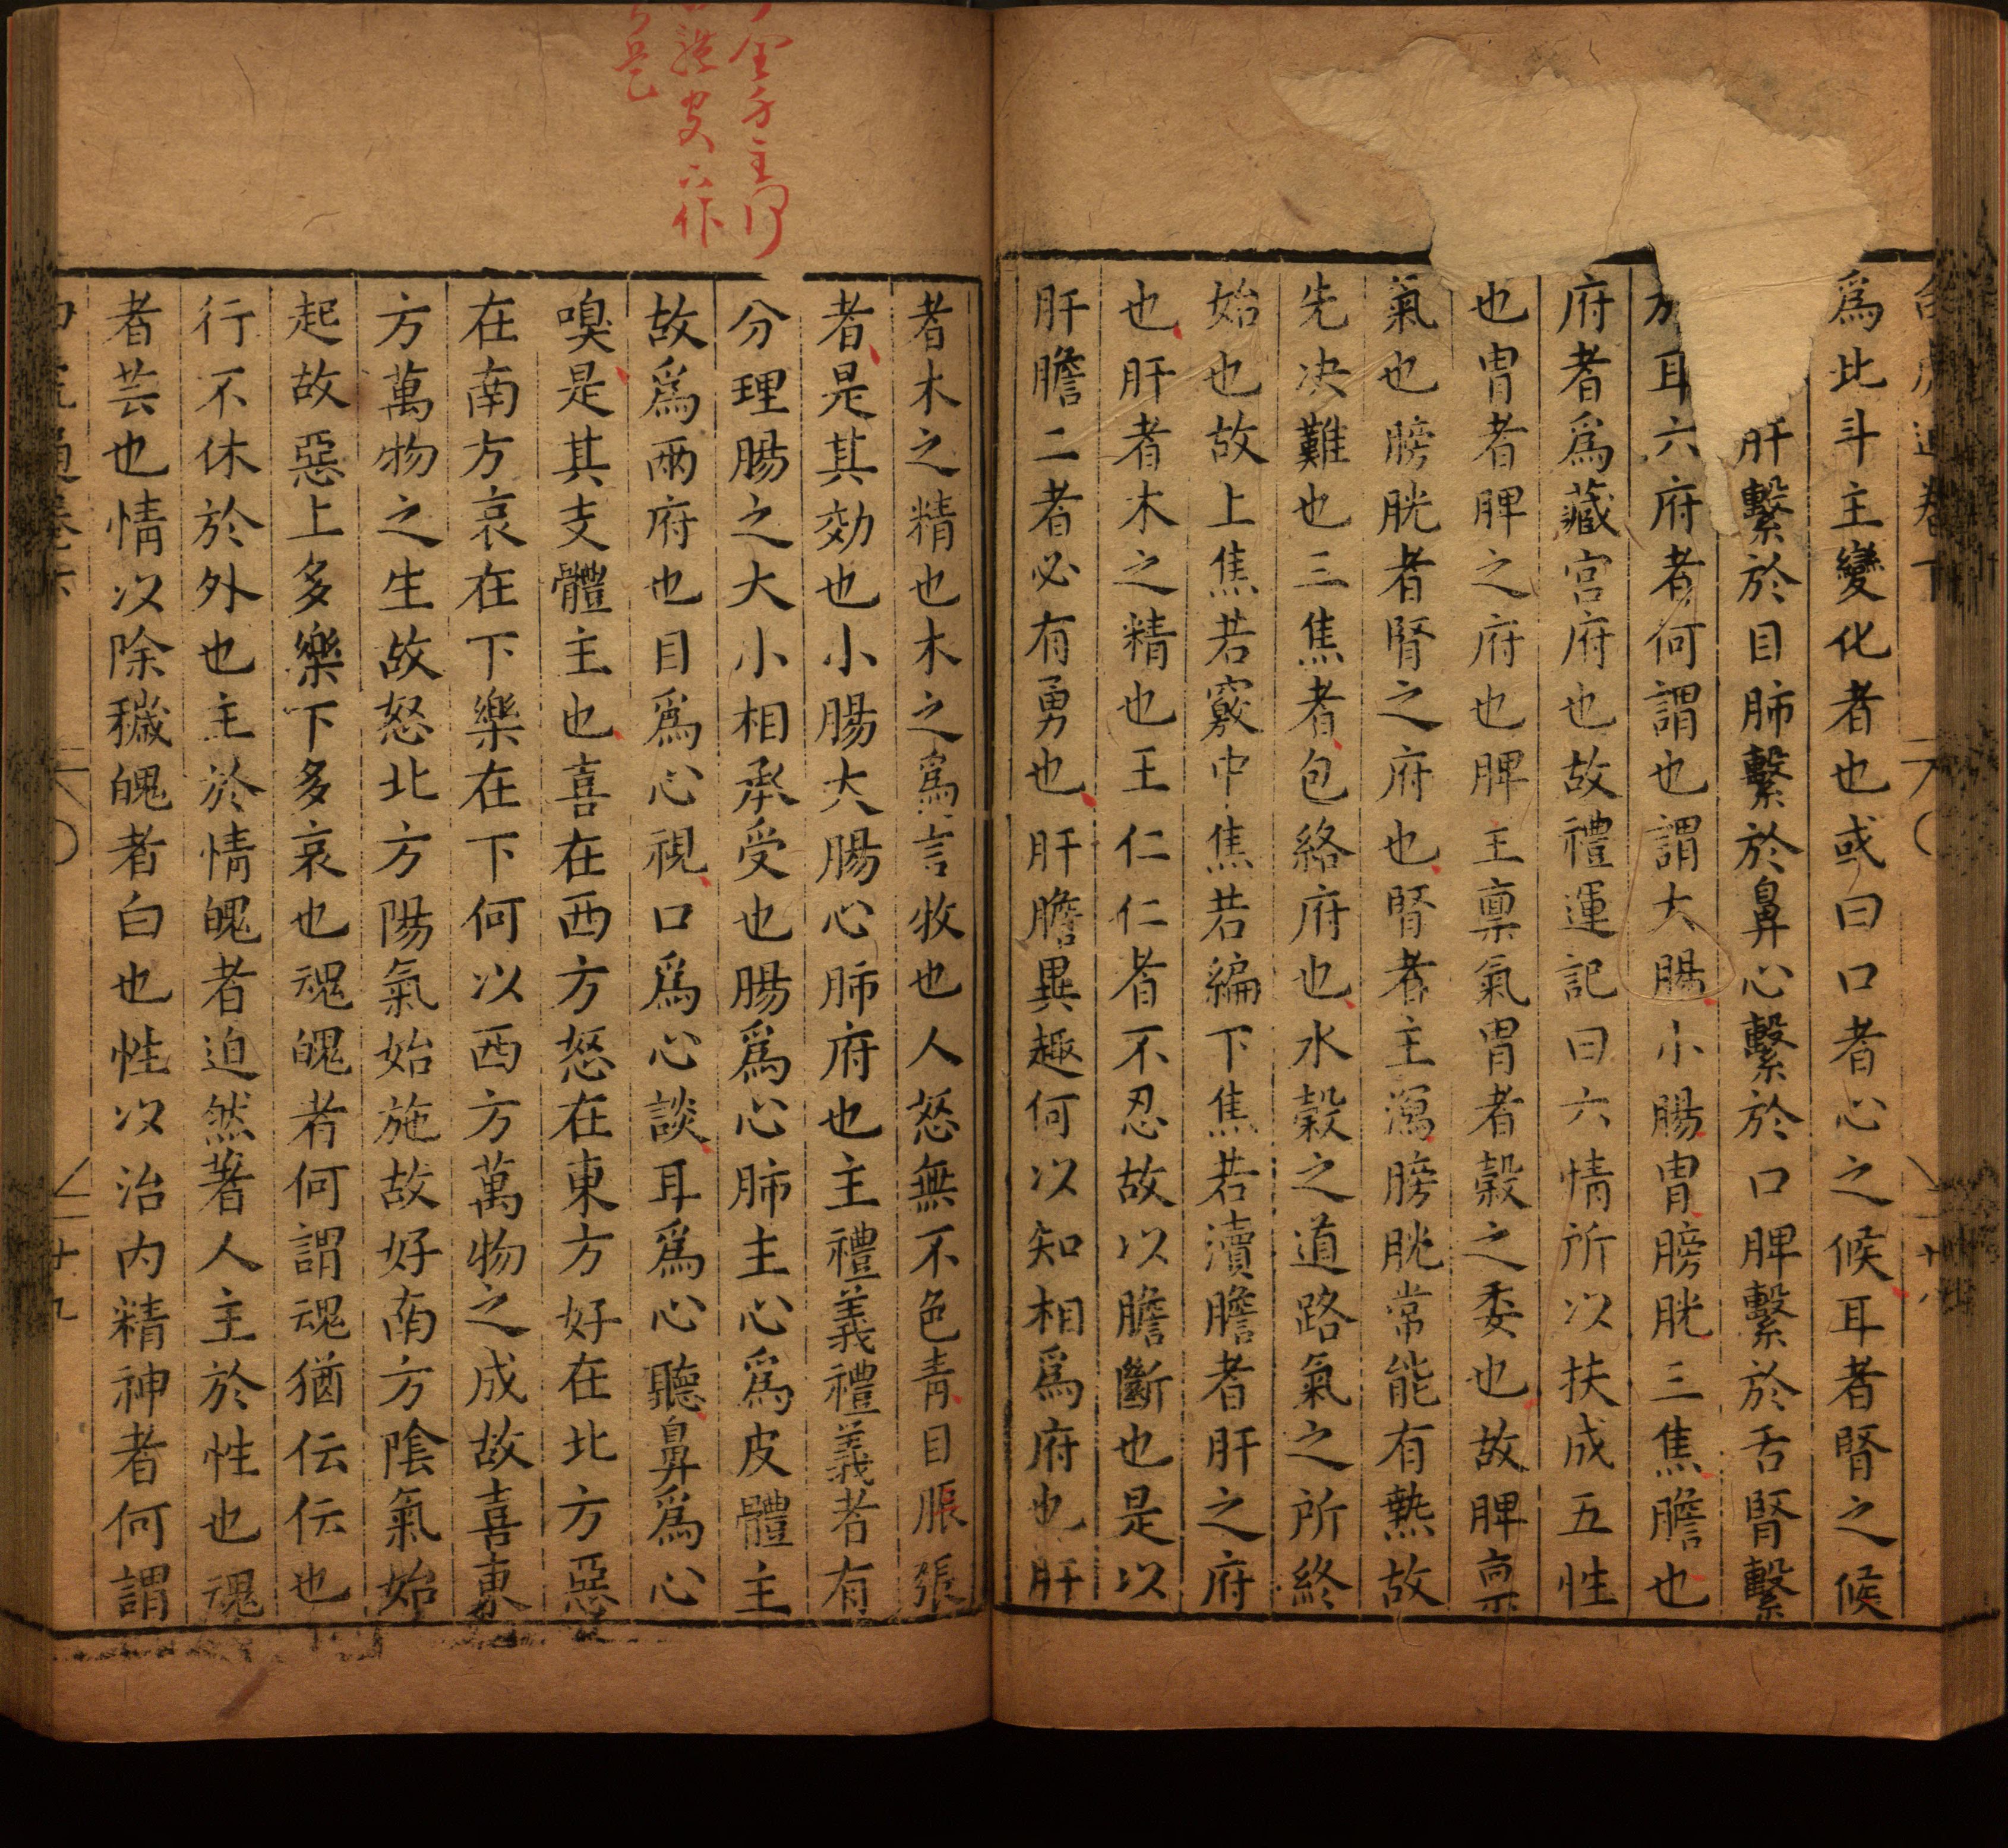 爲北斗主變化者也或曰口者心之候耳者腎之候
肝繫於目肺繫於鼻心繫於口脾繫於舌腎繫
耳六府者何謂也謂大腸小腸胃膀胱三焦膽也
府者爲藏宮府也故禮運記曰六情所以扶成五性
也胃者脾之府也脾主禀氣胃者穀之委也故脾禀
氣也膀胱者腎之府也腎者主瀉膀胱常能有熱故
先決難也三焦者包絡府也水穀之道路氣之所終
始也故上焦若竅中焦若編下焦若瀆膽者肝之府
也肝者木之精也王仁仁者不忍故以膽斷也是以
肝膽二者必有勇也肝膽異趣何以知相爲府也肝
者木之精也木之爲言牧也人怒無不色青目脤張
者是其効也小腸大腸心肺府也主禮義禮義者有
分理腸之大小相承受也腸爲心肺主心爲皮體主
故爲兩府也目爲心視口爲心談耳爲心聽鼻爲心
嗅是其支體主也喜在西方怒在東方好在北方惡
在南方哀在下樂在下何以西方萬物之成故喜東
方萬物之生故怒北方陽氣始施故好南方陰氣始
起故惡上多樂下多哀也魂魄者何謂魂猶伝伝也
行不休於外也主於情魄者迫然著人主於性也魂
者芸也情以除穢魄者白也性以治内精神者何謂